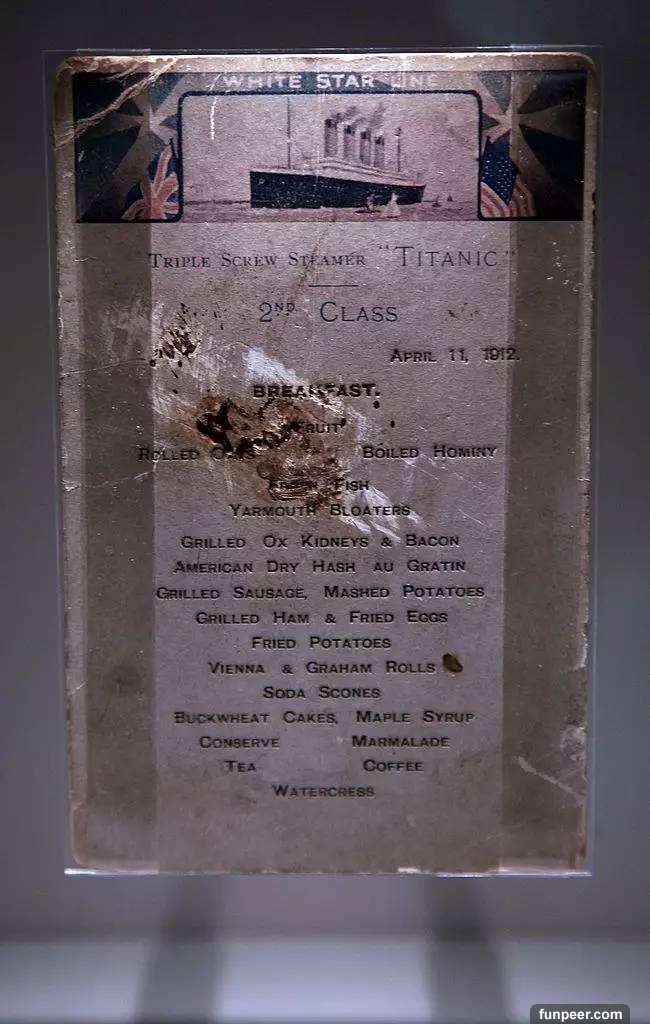 WHITE STAR LINE
TRIPLE SCREW STEAMER "TITANIC"
2ND CLASS
APRIL 11, 1912.
BREAKFAST.
FRUIT
ROLLED OATS BOILED HOMINY
FRESH FISH
YARMOUTH BLOATERS
GRILLED OX KIDNEYS & BACON
AMERICAN DRY HASH AU GRATIN
GRILLED SAUSAGE, MASHED POTATOES
GRILLED HAM & FRIED EGGS
FRIED POTATOES
VIENNA & GRAHAM ROLLS
SODA SCONES
BUCKWHEAT CAKES, MAPLE SYRUP
CONSERVE MARMALADE
TEA COFFEE
WATERCRESS
funpeer.com